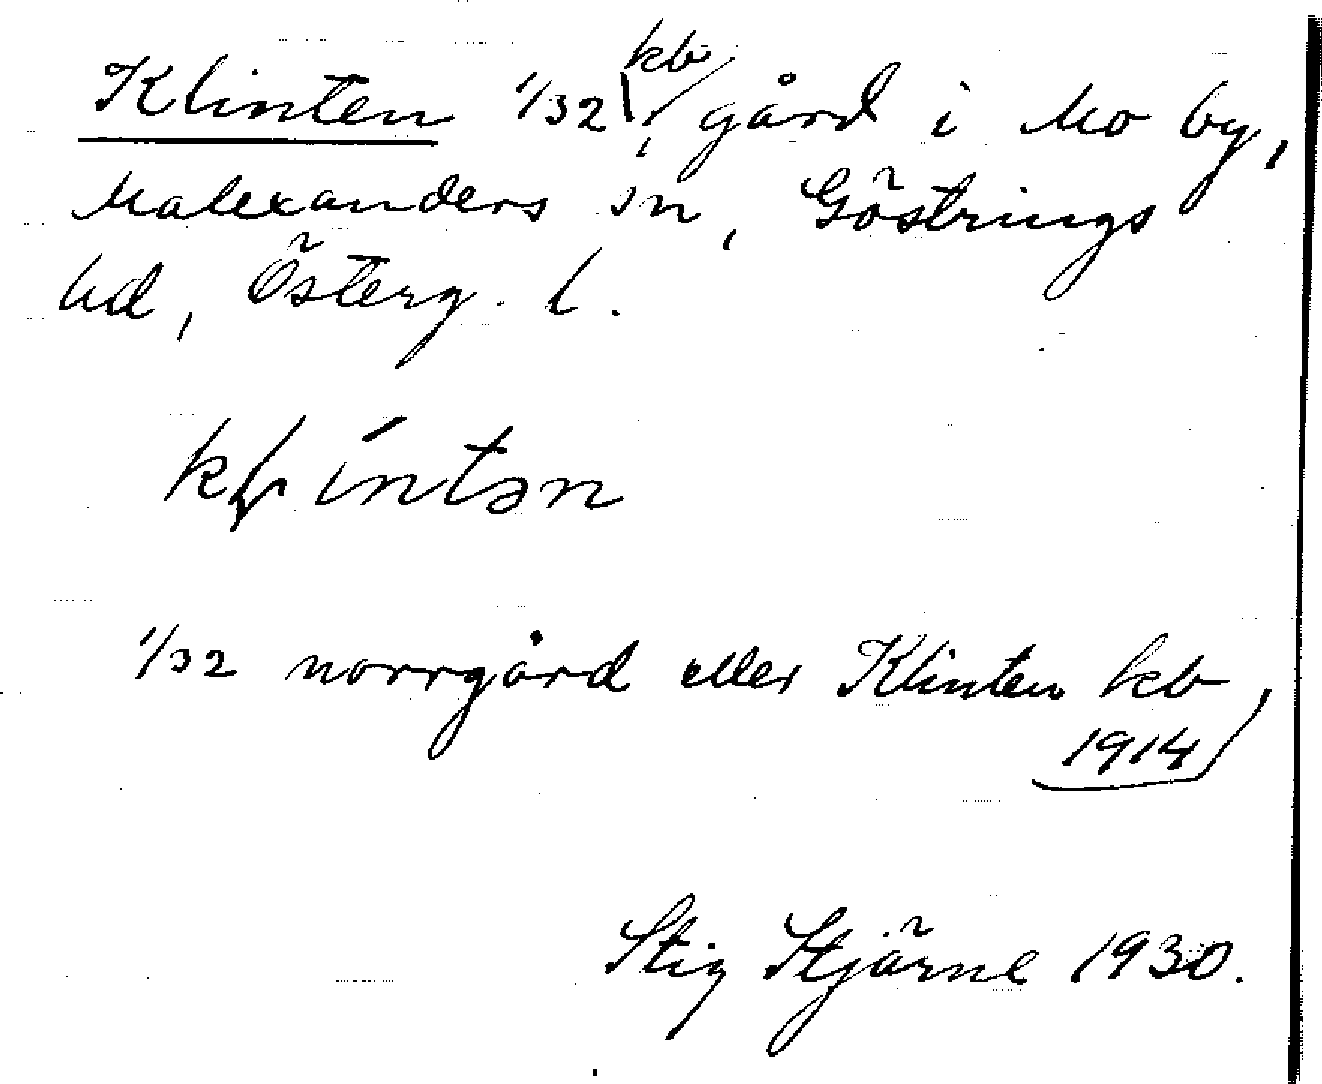 Klinten 1/32 kb, gård i Mo by,
Malexanders sn, Göstrings
hd, Österg. l.
1/32 norrgård eller Klinten kb,
1914
Stig Stjärne 1930.